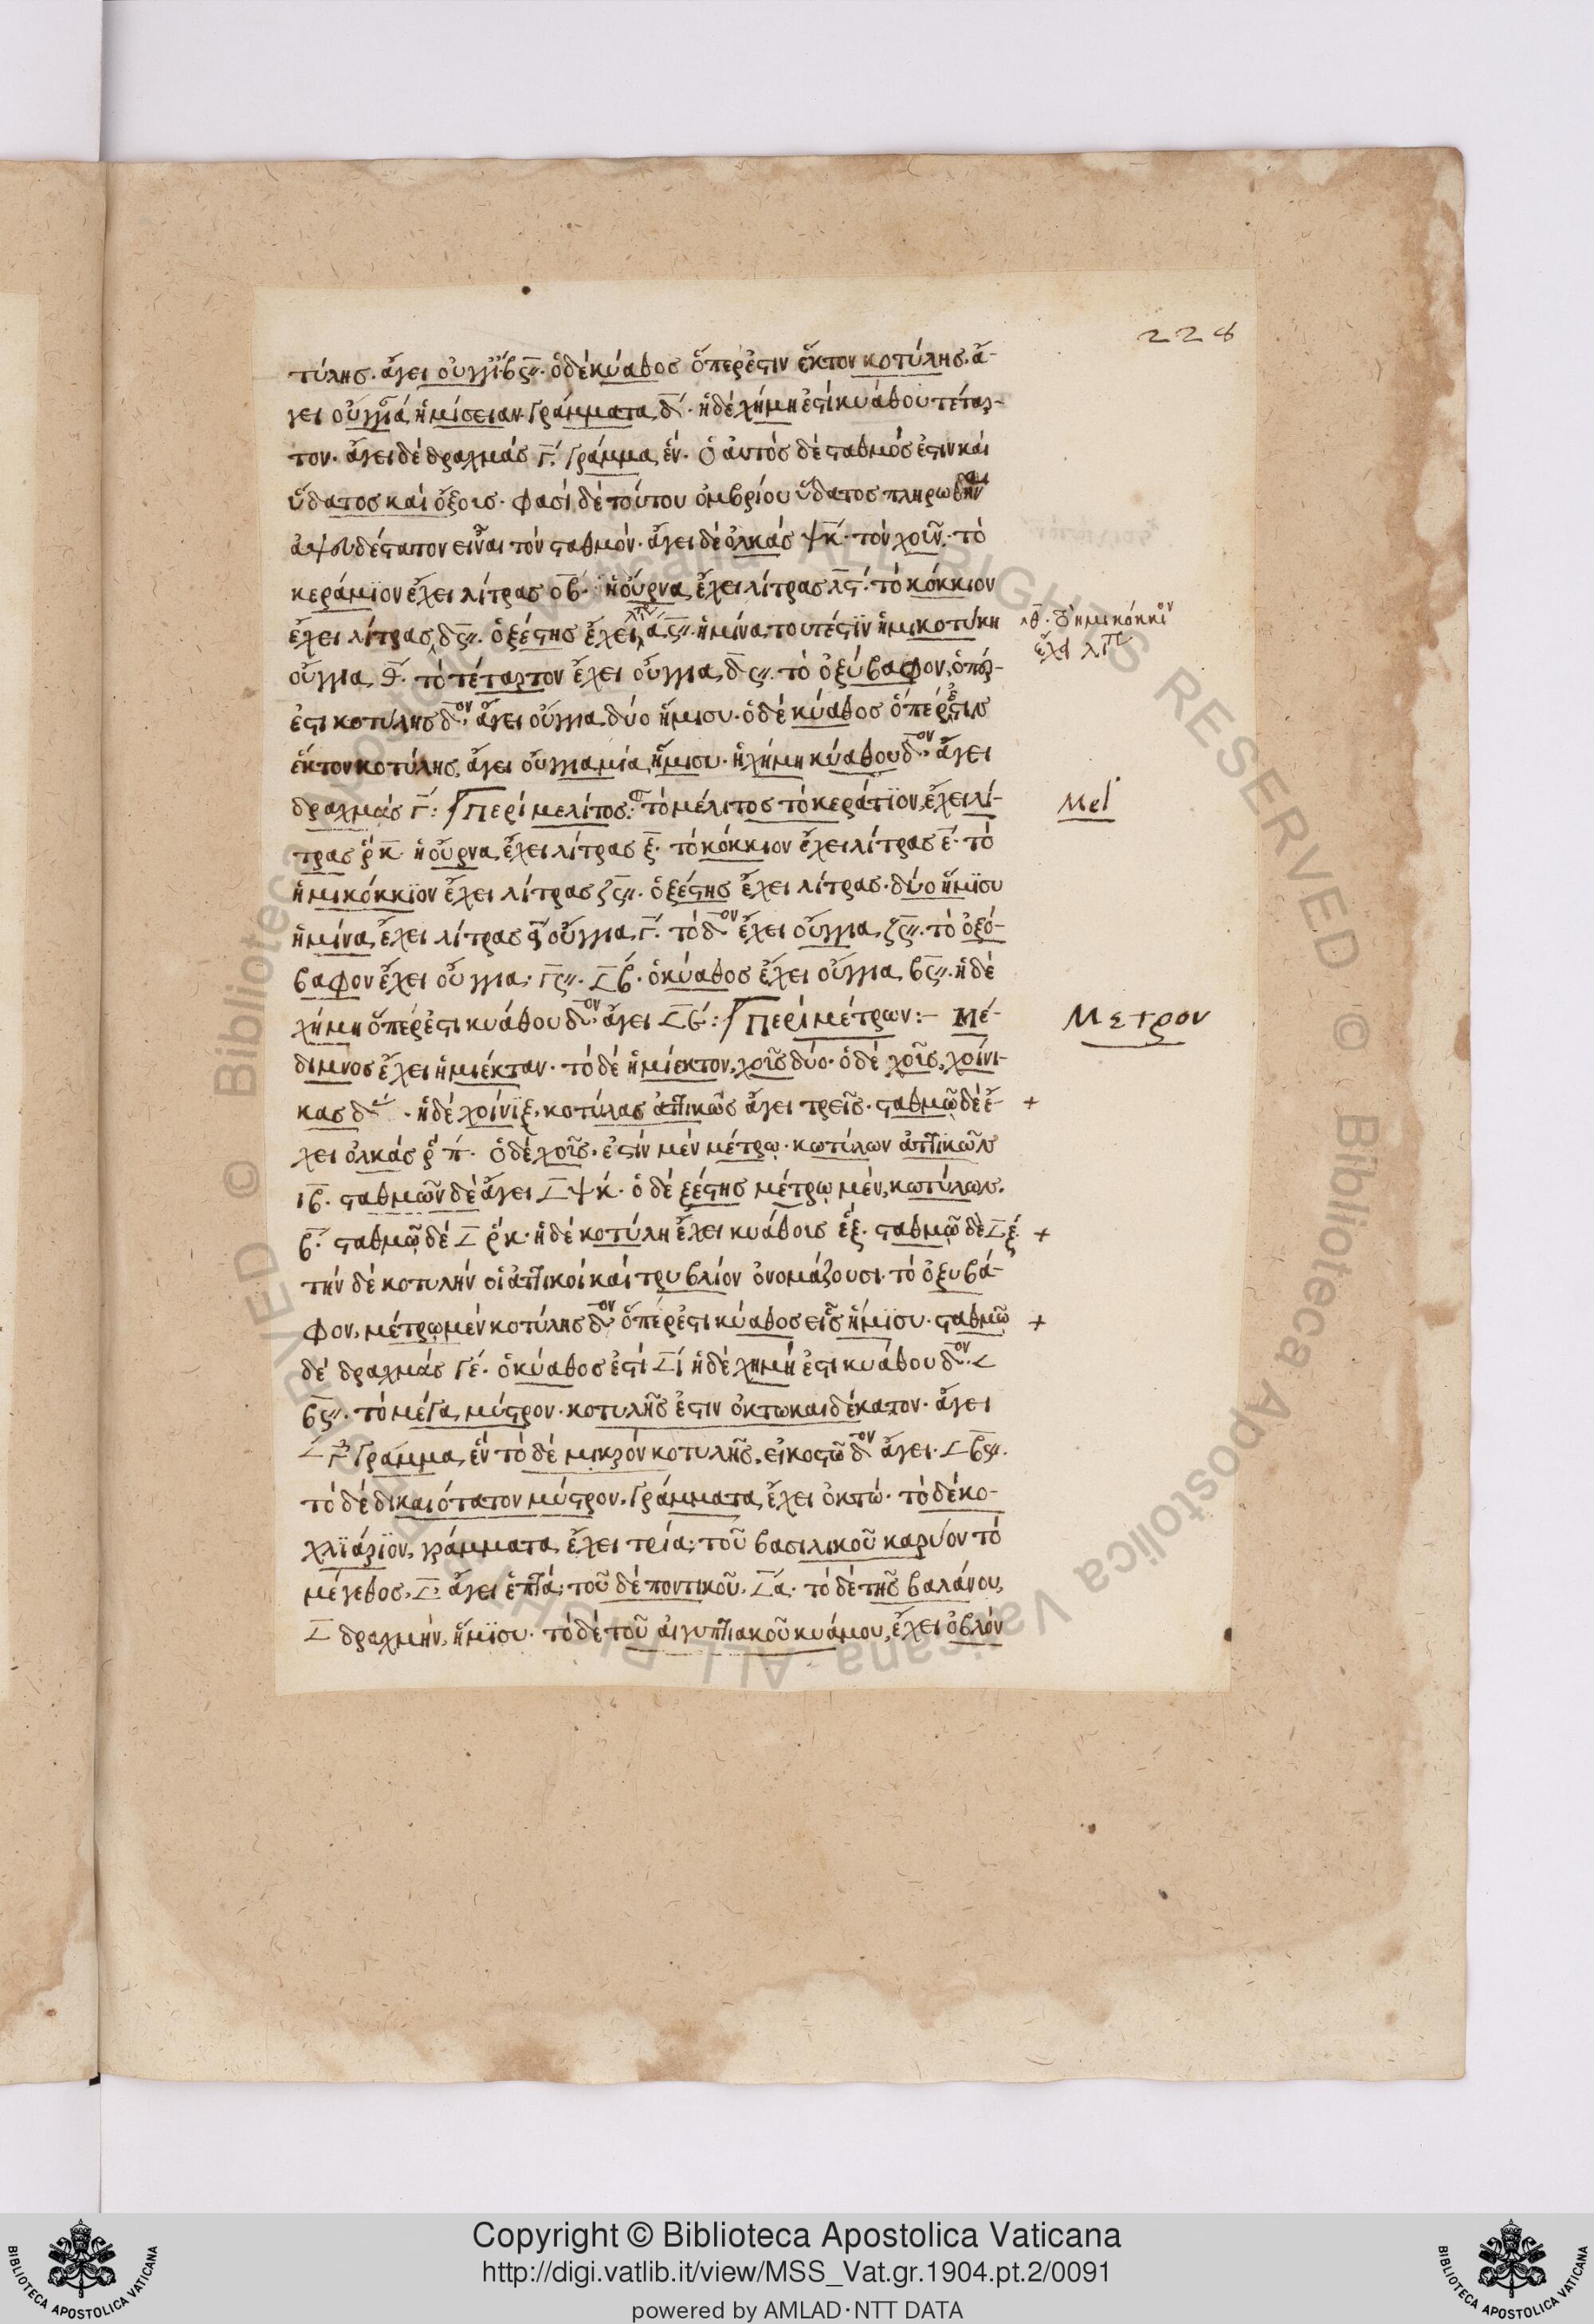 228
τύλης. ἄγει οὐγγί βϛ״. ὁ δὲ κύαθος ὅπερ ἐστὶν ἕκτον κοτύλης. ἄ-
γει οὐγγία ἡμίσειαν γράμματα δ. ἡ δὲ χήμη ἐστὶ κυάθου τέταρ-
τον. ἄγει δὲ δραχμάς γ. γράμμα ἕν. ὁ αὐτὸς δὲ σταθμός ἐστιν καὶ
ὕδατος καὶ ὄξους. φασὶ δὲ τούτου ὀμβρίου ὕδατος πληρωθὲν
ἀψευδέστατον εἶναι τὸν σταθμόν. ἄγει δὲ ὁλκάς ψκ. τὸν χοῦν. τὸ
κεράμϊον ἔχει λίτρας οβ. ἡ οὔρνα ἔχει λίτρας λϛ. τὸ κόκκιον
ἔχει λίτρας δϛ״. ὁ ξέστης ἔχει λίτρ α.ϛ״. ἡμίνα τουτέστϊν ἡμικοτύλη
θ. τὸ ἡμικόκκιον
ἔχει λίτρ
οὔγγια θ. τὸ τέταρτον ἔχει οὔγγια δϛ״. τὸ ὀξύβαφον, ὅπερ
ἐστι κοτύλης δ ον ἄγει οὔγγια δύο ἥμισυ. ὁ δὲ κύαθος ὅπερ ἐστιν
ἕκτον κοτύλης, ἄγει οὔγγια μία ἥμισυ. ἡ χήμη κύαθου δ ον ἄγει
δραχμάς γ: Περὶ μέλιτος: τὸ μέλιτος τὸ κεράτϊον, ἔχει λί-
Mel
τρας ρκ. ἡ οὔρνα ἔχει λίτρας ξ. τὸ κόκκιον ἔχει λίτρας ε. τὸ
ἡμικόκκϊον ἔχει λίτρας ζϛ״. ὁ ξέστης ἔχει λίτρας. δύο ἥμϊσυ
ἡμίνα, ἔχει λίτρας α οὔγγια γ. τὸ δ ον ἔχει οὔγγια ζϛ״. τὸ ὀξό-
βαφον ἔχει οὔγγια γϛ״. 𐅻β. ὁ κύαθος ἔχει οὔγγια βϛ״. ἡ δὲ
χήμη ὅπερ ἐστι κυάθου δ ον ἄγει 𐅻ε: Περὶ μέτρων:– Μέ-
Μετρον
διμνος ἔχει ἡμιέκταν. τὸ δὲ ἡμίεκτον, χοῦς δύο. ὁ δὲ χοῦς, χοίνι-
κας δ. ἡ δὲ χοίνϊξ, κοτύλας ἀττικῶς ἄγει τρεῖς. σταθμῷ δὲ ἔ- +
χει ὁλκάς ρπ. ὁ δὲ χοῦς. ἐστὶν μὲν μέτρῳ. κωτύλων ἀττικῶν
ιβ. σταθμῶν δὲ ἄγει 𐅻ψκ. ὁ δὲ ξέστης μέτρῳ μὲν, κωτύλων.
β. σταθμῷ δὲ 𐅻 ρκ. ἡ δὲ κοτύλη ἔχει κυάθους ἕξ. σταθμῷ δὲ 𐅻ξ. +
τὴν δὲ κοτυλὴν οἱ ἀττικοὶ καὶ τρυβλίον ὀνομάζουσι. τὸ ὀξυβά-
φον, μέτρῳ μὲν κοτύλης δ ον ὅπερ ἐστι κύαθος εἷς ἥμϊσυ. σταθμῷ +
δὲ δραχμάς ιε. ὁ κύαθος ἐστὶ 𐅻ι ἡ δὲ χημὴ ἐστι κυάθου δ ον. 𐅻
βϛ״. τὸ μέγα μύστρον. κοτυλῆς ἐστιν ὀκτωκαιδέκατον. ἄγει
𐅻γ γράμμα ἕν τὸ δὲ μικρόν κοτυλῆς, εἰκοστῶ δ ον ἄγει. 𐅻βϛ״.
τὸ δὲ δικαιότατον μύστρον. γράμματα ἔχει ὀκτώ. τὸ δὲ κο-
χλϊάρϊον, γράμματα ἔχει τρία; τοῦ βασιλικοῦ καρύον τὸ
μέγεθος, 𐅻 ἄγει ἑπτά; τοῦ δὲ ποντικοῦ, 𐅻α. τὸ δὲ τῆς βαλάνου,
𐅻 δραχμήν, ἥμϊσυ. τὸ δὲ τοῦ αἰγυπτιακοῦ κυάμου, ἔχει ὀβλόν
© Biblioteca Apostolica Vaticana ALL RIGHTS RESERVED
Copyright © Biblioteca Apostolica Vaticana
http://digi.vatlib.it/view/MSS_Vat.gr.1904.pt.2/0091
powered by AMLAD·NTT DATA
BIBLIOTECA APOSTOLICA VATICANA
BIBLIOTECA APOSTOLICA VATICANA